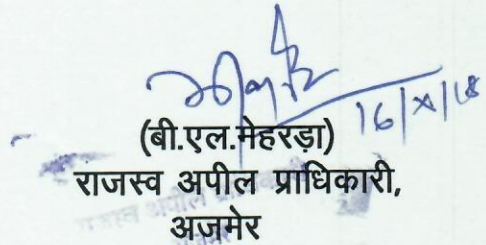 16/XI/18
(बी.एल.मेहरड़ा)
राजस्व अपील प्राधिकारी,
अजमेर